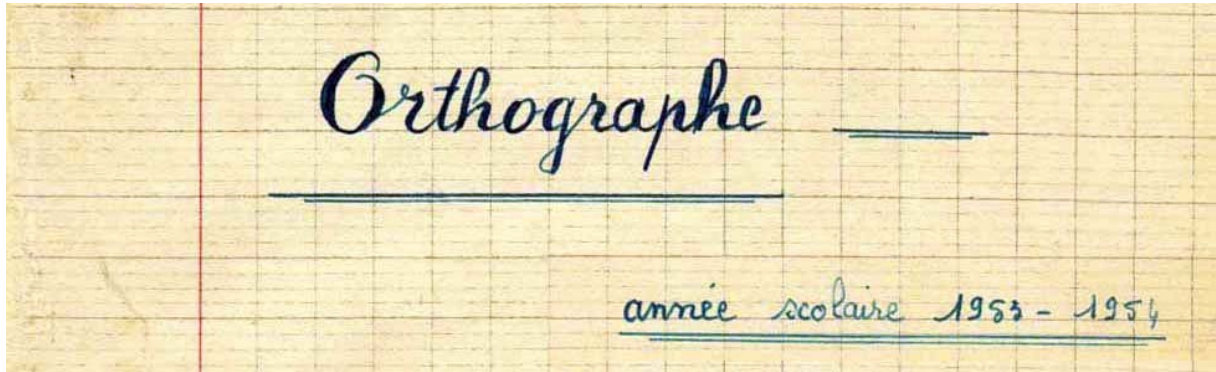 Orthographe
année scolaire 1953 - 1954